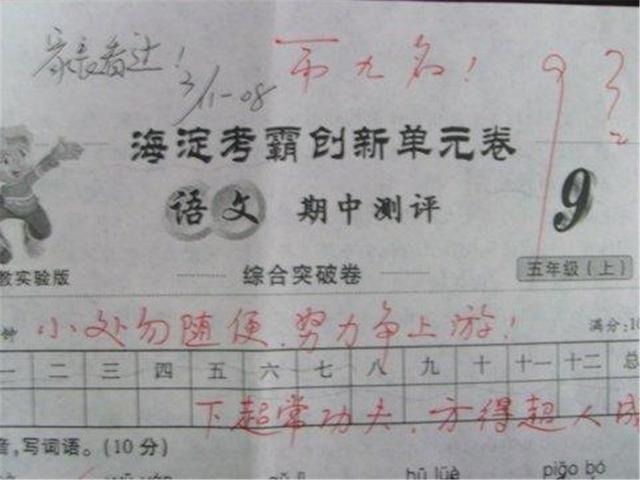 家长看过！ 第九名！ 93
3/11-08
海淀考霸创新单元卷
语文 期中测评 9
教实验版 综合突破卷 五年级（上）
钟 小处勿随便，努力争上游！ 满分:10
一 二 三 四 五 六 七 八 九 十 十一 十二 总
下超常功夫，方得超人成
音,写词语。(10分)
qǔ lǐ hū lüè piāo bó